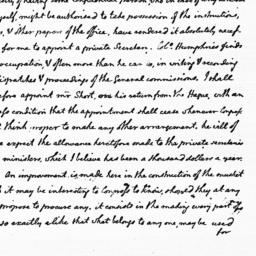 myself, might be authorised to take possession of the instructions,
& other papers of the office, have rendered it absolutely necess
for me to appoint a private Secretary. Colo. Humphries finds
occupation, & often more than he can do, in writing & recording
dispatches & proceedings of the General commissions. I shall
before appoint mr Short, on his return from the Hague, with an
express condition that the appointment shall cease whenever Congress
think proper to make any other arrangement. he will of
expect the allowance heretofore made to the private secretaries
ministers, which I believe has been a thousand dollars a year.
An improvement is made here in the construction of the musket
it may be interesting to Congress to know, should they at any
propose to procure any. it consists in the making every part of
so exactly alike that what belongs to any one, may be used
for